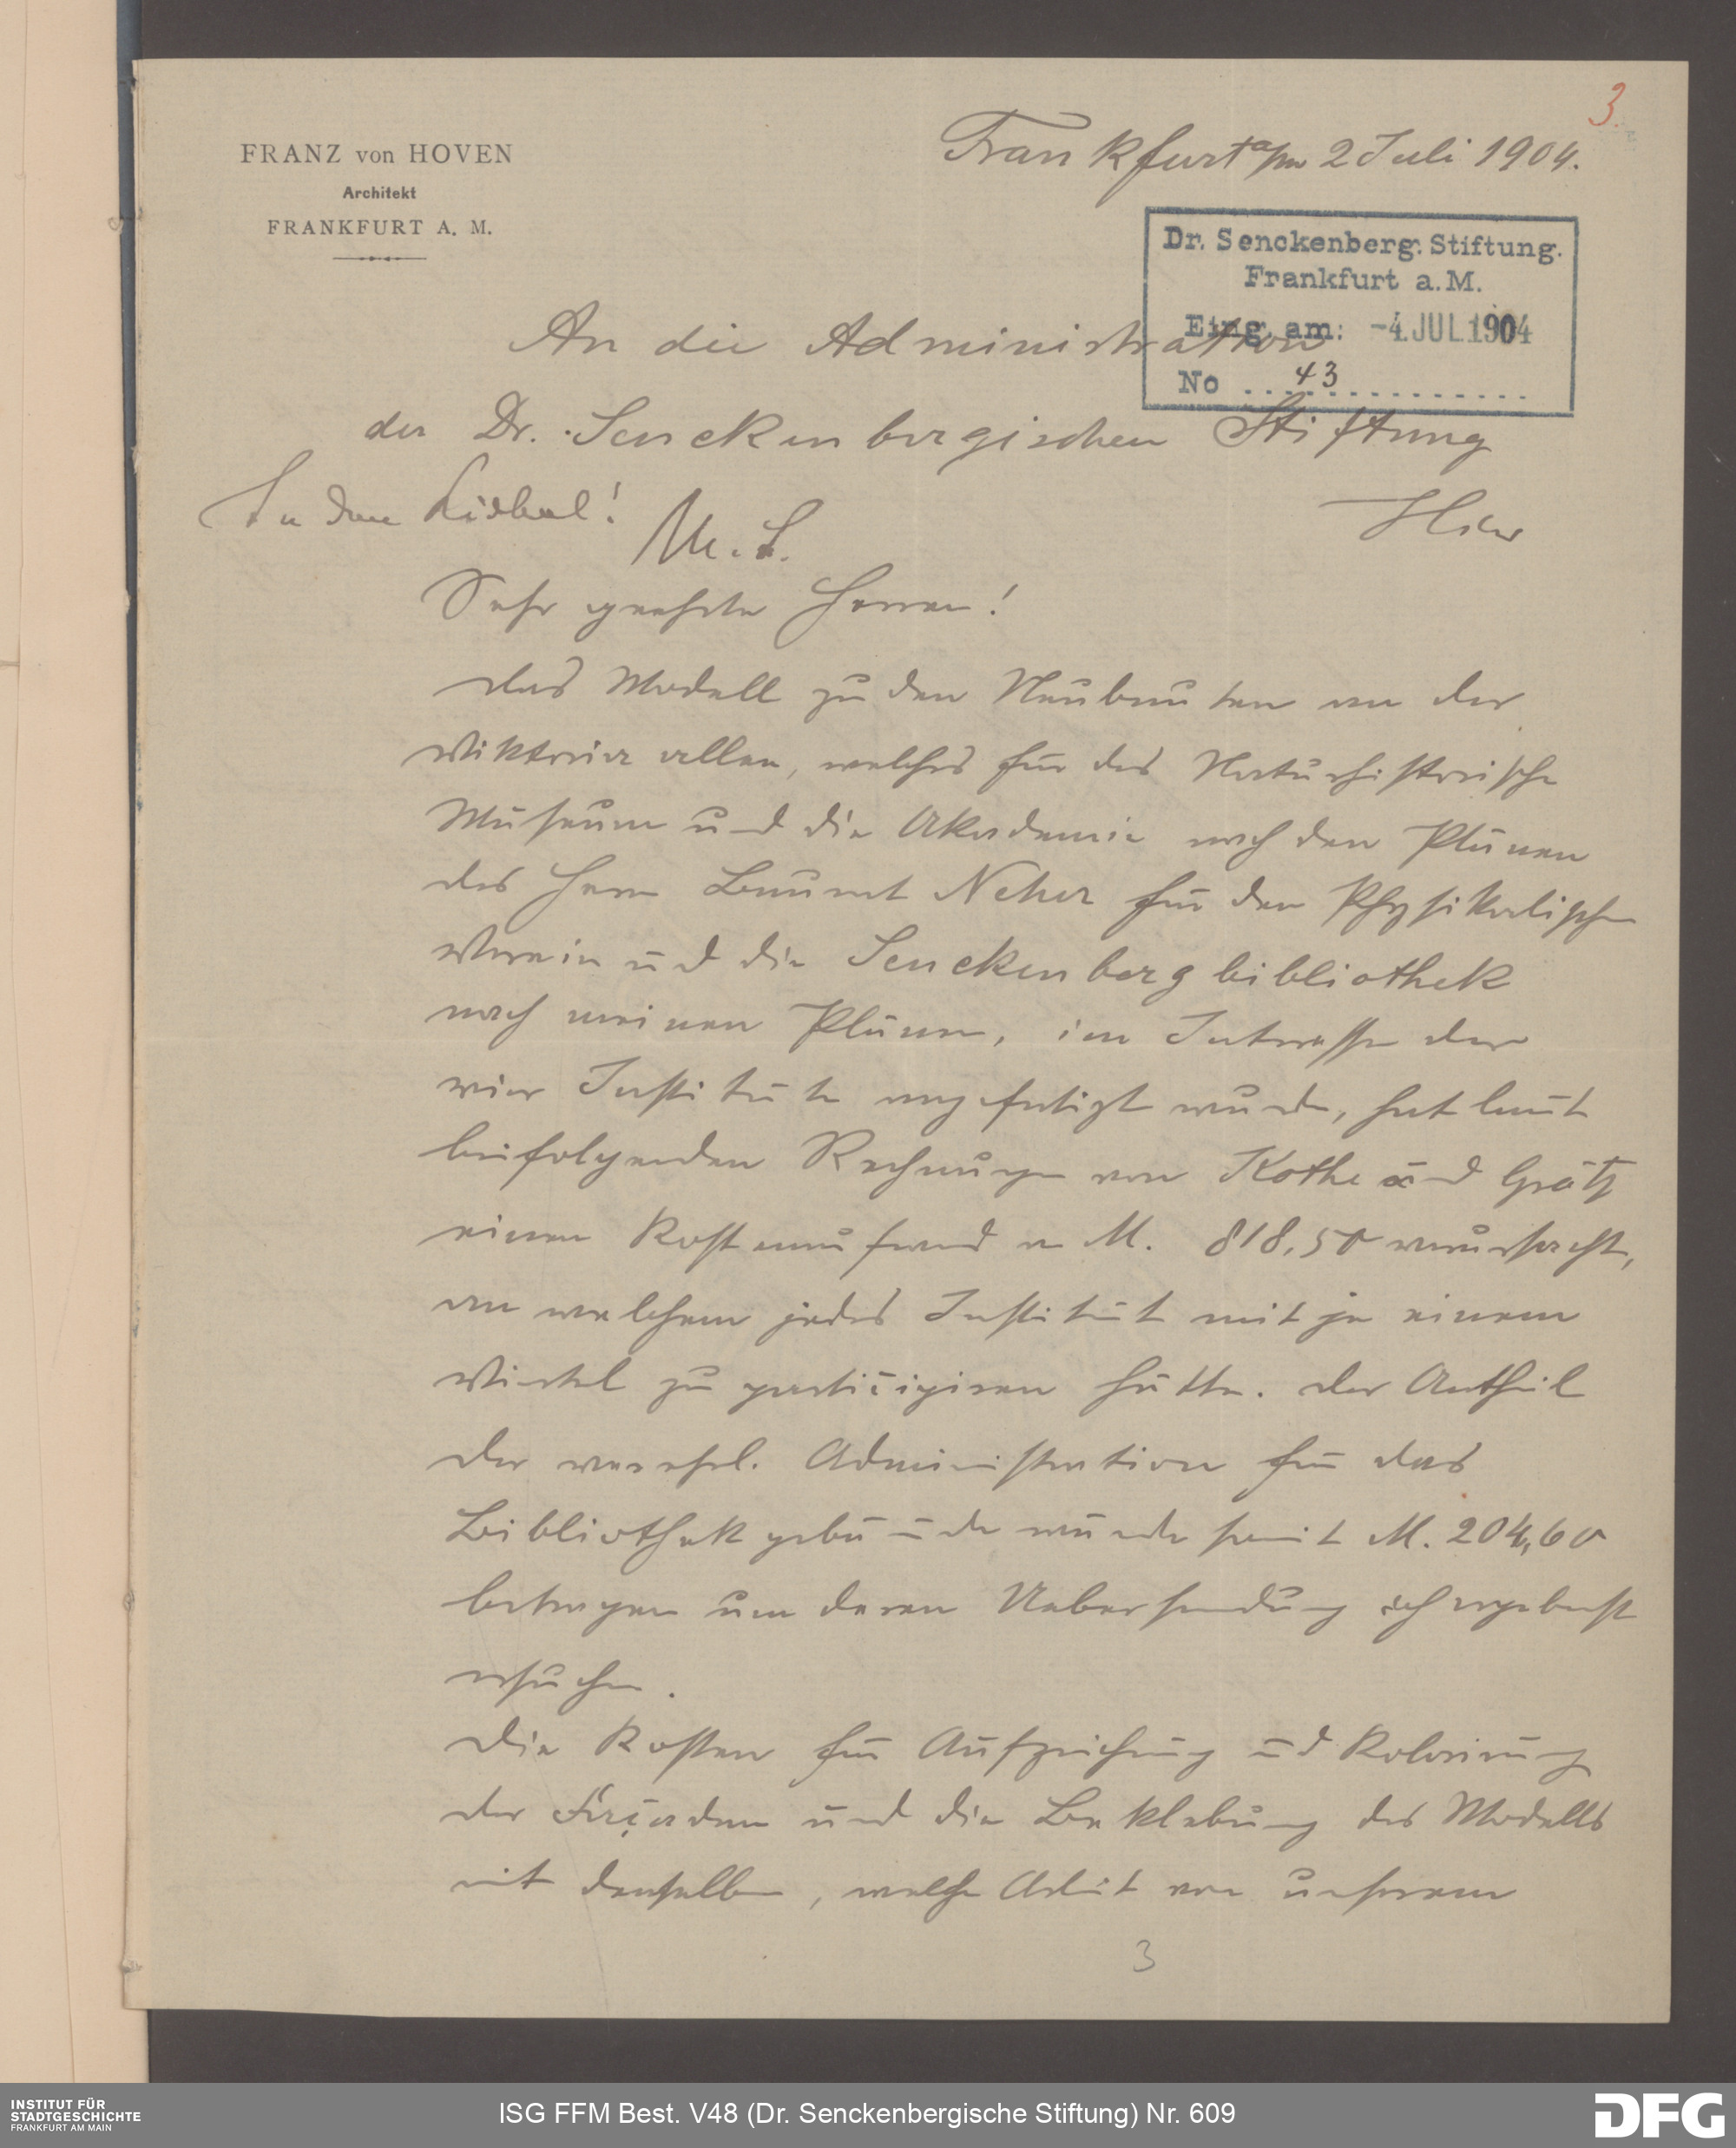 3.
FRANZ von HOVEN
Architekt
FRANKFURT A. M.
Frankfurt a/m 2 Juli 1904.
Dr. Senckenberg. Stiftung.
Frankfurt a. M.
Eing. am: -4. JUL. 1904
No 43
An die Administration
der Dr. Senckenbergischen Stiftung
Hier
Sehr geehrte Herren!
Das Modell zu den Neubauten an der
Viktoria allee, welches für das Naturhistorische
Museum und die Akademie nach den Plänen
des Herrn Baurat Neher für den Physikalischen
Verein und die Senckenbergbibliothek
nach meinen Plänen, im Interesse der
vier Institute angefertigt wurde, hat laut
beifolgenden Rechnungen von Kothe und Grätz
einen Kostenaufwand v. M. 818,50 verursacht,
an welchem jedes Institut mit je einem
Viertel zu participiren hätte. Der Antheil
der verehrl. Administration für das
Bibliothekgebäude würde somit M. 204,60
betragen um deren Uebersendung ich ergebenst
ersuche.
Die Kosten für Aufzeichnung und Kolorirung
der Façaden und die Beklebung des Modells
mit denselben, welche Arbeit von unserem
3
INSTITUT FÜR
STADTGESCHICHTE
FRANKFURT AM MAIN
ISG FFM Best. V48 (Dr. Senckenbergische Stiftung) Nr. 609
DFG